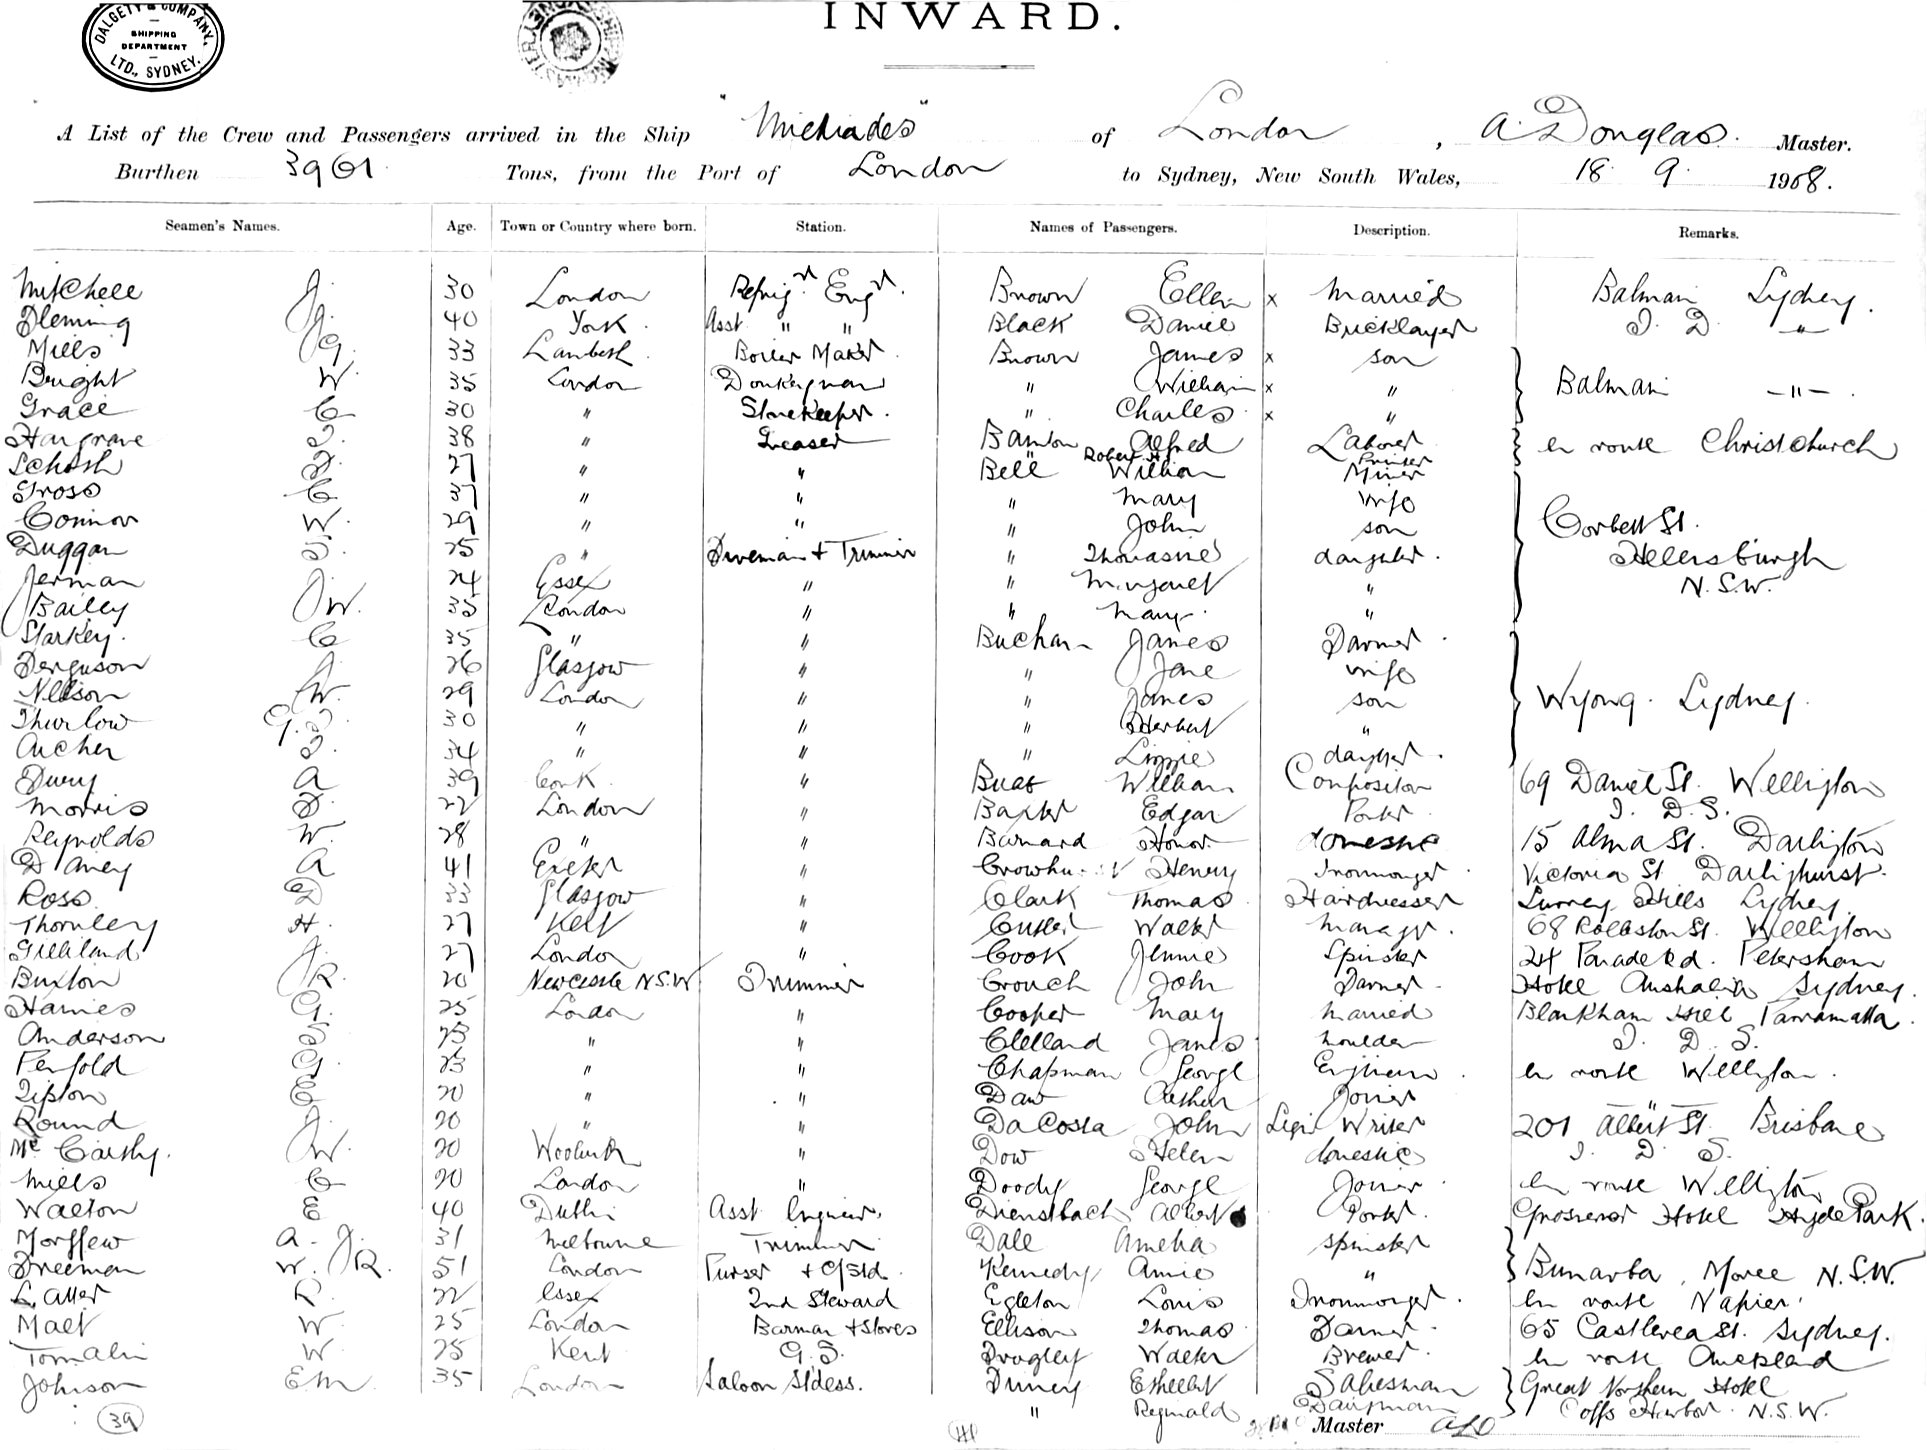 DALGETY & COMPANY, LTD., SYDNEY.
SHIPPING DEPARTMENT
INWARD.
A List of the Crew and Passengers arrived in the Ship "Miltiades" of London, A. Douglas. Master.
Burthen 3961 Tons, from the Port of London to Sydney, New South Wales, 18. 9. 1908.
Seamen's Names. Age. Town or Country where born. Station. Names of Passengers. Description. Remarks.
Mitchell J. 30 London Refrig.r Eng.r Brown Ellen x Married Balmain Sydney.
Fleming J. 40 York. Asst " " Black Daniel Bricklayer I. D. "
Mills J G. 33 Lambeth. Boiler Maker. Brown James x son
Bright W. 35 London Donkeyman " William x " Balmain -"-.
Grace C 30 " Storekeeper. " Charles x "
Hargrave 38 " Greaser Alfred Laborer En route Christchurch
27 " " Bell Robert H William Printer Miner
Gross C 37 " " " Mary wife
Connor W. 29 " " " John son Corbett St.
Duggan 25 " Fireman & Trimmer " Thomasine daughter. Helensburgh
Jerman 24 Essex " " Margaret " N.S.W.
Bailey J W. 35 London " " Mary. "
Starkey. C 35 " " Buchan James Farmer.
Ferguson J. 26 Glasgow " " Jane wife
Neilson J W. 29 London " " James son Wyong. Sydney.
Thurlow G. 30 " " " Herbert "
Archer 34 " " " Lizzie daughter.
A 39 Cork. " William Compositor 69 Daniel St. Wellington
Morris 22 London " Baxter Edgar Porter I. D. S.
Reynolds W. 28 " " Barnard Honor domestic 15 Alma St. Darlington
A 41 Exeter " Crowhurst Henry Ironmonger Victoria St Darlighurst.
Ross. D 33 Glasgow " Clark Thomas Hairdresser Surrey Hills Sydney.
Thornley H. 27 Kent " Cutler Walter Manager. 68 St. Wellington
Gilliland J. 27 London " Cook Jennie Spinster 24 Parade Rd. Petersham
Buxton J R. 20 Newcastle N.S.W. Trimmer Crouch John Farmer. Hotel Australia Sydney.
Haines G. 25 London " Cooper Mary Married Blarkham Hill Parramatta.
Anderson S 23 " " Clelland James Moulder I. D. S.
Penfold G. 23 " " Chapman George Engineer. En route Wellington.
Tipton E 20 " " Daw Arthur Joiner "
Round J. 20 " " Da Costa John Sign Writer 201 Albert St. Brisbane
Mc Carthy. J W. 20 Woolwich " Dow Helen domestic I. D. S.
Mills C 20 London " Doody George Joiner En route Wellington
Walton E 40 Dublin Asst Engineer. Dienstbach Albert Porter. Grosvenor Hotel Hyde Park.
Morffew A. J. 31 Melbourne Trimmer Dale Amelia Spinster
Freeman W. J R. 51 London Purser & C/Std. Kennedy Annie " Bunarba, Moree N.S.W.
Latter R. 22 Essex 2nd Steward Egleton Louis Ironmonger. En route Napier.
Malt W. 25 London Barman & Stores Ellison Thomas Farmer. 65 Castlerea St. Sydney.
Tomalin W. 25 Kent G. S. Walter Brewer. En route Auckland
Johnson E M. 35 London Saloon Stdess. Salesman Great Northern Hotel
39 " Reginald Dairyman Coffs Harbor. N.S.W.
Master ALD